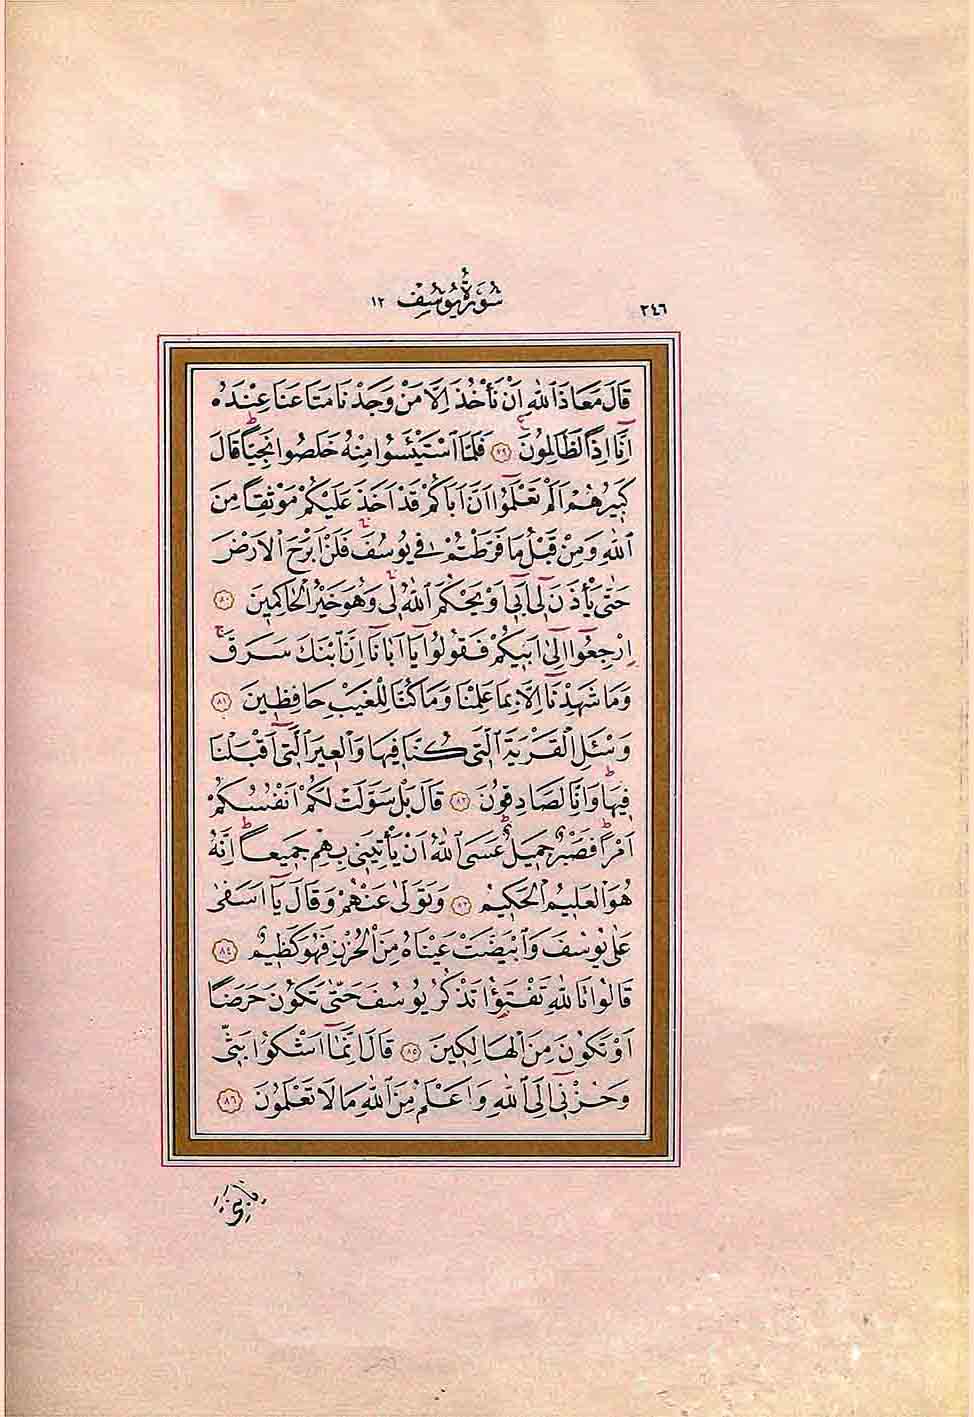 ٢٤٦ سُورَةُ يُوسُفَ ١٢
قَالَ مَعَاذَ اللّٰهِ اَنْ نَأْخُذَ اِلَّا مَنْ وَجَدْنَا مَتَاعَنَا عِنْدَهُ
اِنَّٓا اِذًا لَظَالِمُونَ ﴿٧٩﴾ فَلَمَّا اسْتَيْـَٔسُوا مِنْهُ خَلَصُوا نَجِيًّاۜ قَالَ
كَبِيرُهُمْ اَلَمْ تَعْلَمُٓوا اَنَّ اَبَاكُمْ قَدْ اَخَذَ عَلَيْكُمْ مَوْثِقًا مِنَ
اللّٰهِ وَمِنْ قَبْلُ مَا فَرَّطْتُمْ فِي يُوسُفَۚ فَلَنْ اَبْرَحَ الْاَرْضَ
حَتّٰى يَأْذَنَ لِٓي اَبِٓي اَوْ يَحْكُمَ اللّٰهُ لِيۚ وَهُوَ خَيْرُ الْحَاكِمِينَ ﴿٨٠﴾
اِرْجِعُٓوا اِلٰٓى اَبِيكُمْ فَقُولُوا يَٓا اَبَانَٓا اِنَّ ابْنَكَ سَرَقَۚ
وَمَا شَهِدْنَٓا اِلَّا بِمَا عَلِمْنَا وَمَا كُنَّا لِلْغَيْبِ حَافِظِينَ ﴿٨١﴾
وَسْـَٔلِ الْقَرْيَةَ الَّتِي كُنَّا فِيهَا وَالْعِيرَ الَّتِٓي اَقْبَلْنَا
فِيهَاۜ وَاِنَّا لَصَادِقُونَ ﴿٨٢﴾ قَالَ بَلْ سَوَّلَتْ لَكُمْ اَنْفُسُكُمْ
اَمْرًاۜ فَصَبْرٌ جَمِيلٌۜ عَسَى اللّٰهُ اَنْ يَأْتِيَنِي بِهِمْ جَمِيعًاۜ اِنَّهُ
هُوَ الْعَلِيمُ الْحَكِيمُ ﴿٨٣﴾ وَتَوَلّٰى عَنْهُمْ وَقَالَ يَٓا اَسَفٰى
عَلٰى يُوسُفَ وَابْيَضَّتْ عَيْنَاهُ مِنَ الْحُزْنِ فَهُوَ كَظِيمٌ ﴿٨٤﴾
قَالُوا تَاللّٰهِ تَفْتَؤُ۬ا تَذْكُرُ يُوسُفَ حَتّٰى تَكُونَ حَرَضًا
اَوْ تَكُونَ مِنَ الْهَالِكِينَ ﴿٨٥﴾ قَالَ اِنَّمَٓا اَشْكُوا بَثِّي
وَحُزْنِٓي اِلَى اللّٰهِ وَاَعْلَمُ مِنَ اللّٰهِ مَا لَا تَعْلَمُونَ ﴿٨٦﴾
يَا بَنِيَّ